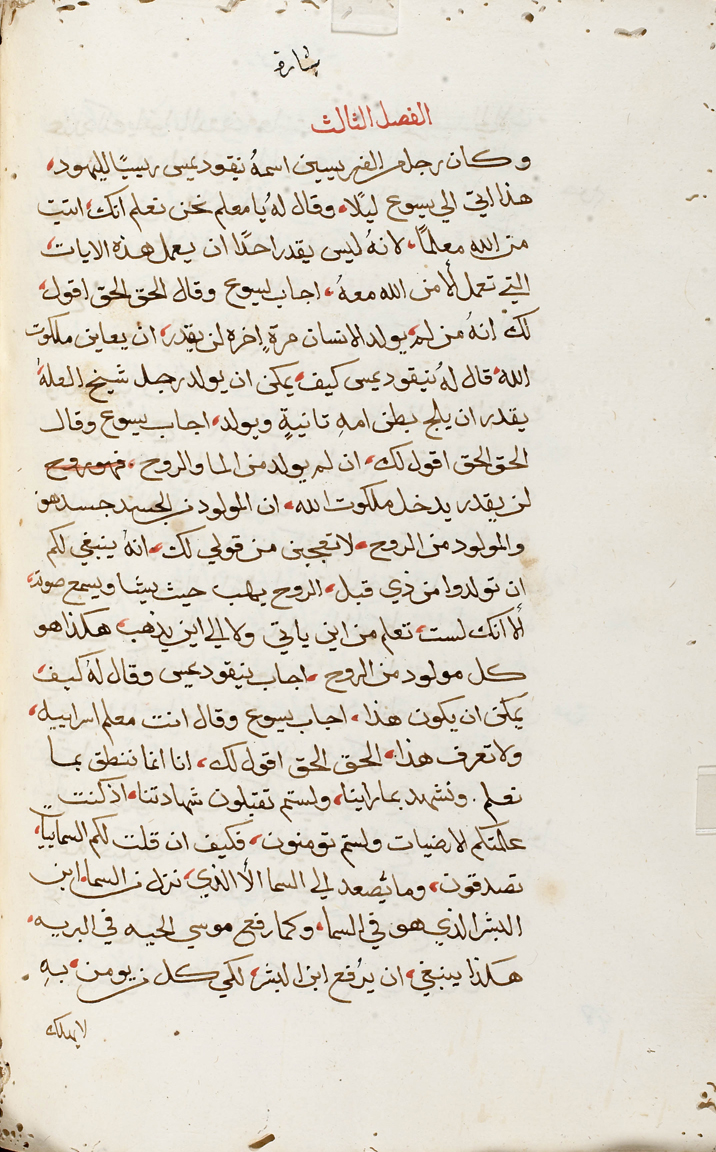 بشارة
الفصل الثالث
وكان رجل من الفريسيين اسمهُ نيقوديمس رييسًا لليهود،
هذا اتي الي يسوع ليلًا، وقال لهُ يا معلم نحن نعلم انك، اتيت
من الله معلمًا، لانهُ ليس يقدر احدًا ان يعمل هذه الايات،
التي تعمل الا من الله معهُ، اجاب يسوع وقال الحق الحق اقول،
لك انهُ من لم، يولد الانسان مرةٍ اخره لن يقدر، ان يعاين ملكوت
الله، قال لهُ نيقوديمس كيف، يمكن ان يولد رجل شيخ العلهُ
يقدر ان يلج بطن امهِ تانيةٍ ويولد، اجاب يسوع وقال
الحق الحق اقول لك، ان لم يولد من الما والروح، فهو روح
لن يقدر يدخل ملكوت الله، ان المولود من الجسد جسد هو
والمولود من الروح، لا تعجبن من قولي لك، انهُ ينبغي لكم
ان تولدوا من ذي قبل، الروح يهب حيث يشا ويسمع صوته،
الا انك لست، تعلم من اين ياتي ولا الي اين يذهب، هكذا هو
كل مولود من الروح، اجاب نيقوديمس وقال لهُ كيف،
يمكن ان يكون هذا، اجاب يسوع وقال انت معلم اسراييل،
ولا تعرف هذا، الحق الحق اقول لك، اننا انما ننطق بما
نعلم. ونشهد بما راينا، ولستم تقبلون شهادتنا، اذ كنت
علمتكم الارضيات ولستم تومنون، فكيف ان قلت لكم السماييات،
تصدقون، وما يصعد الي السما الا الذي، نزل من السما، ابن
البشر الذي هو في السما، وكما رفع موسي الحيه في البريه،
هكذا ينبغي، ان يرفع ابن البشر، لكي كل من يومن، بهِ
لا يهلك